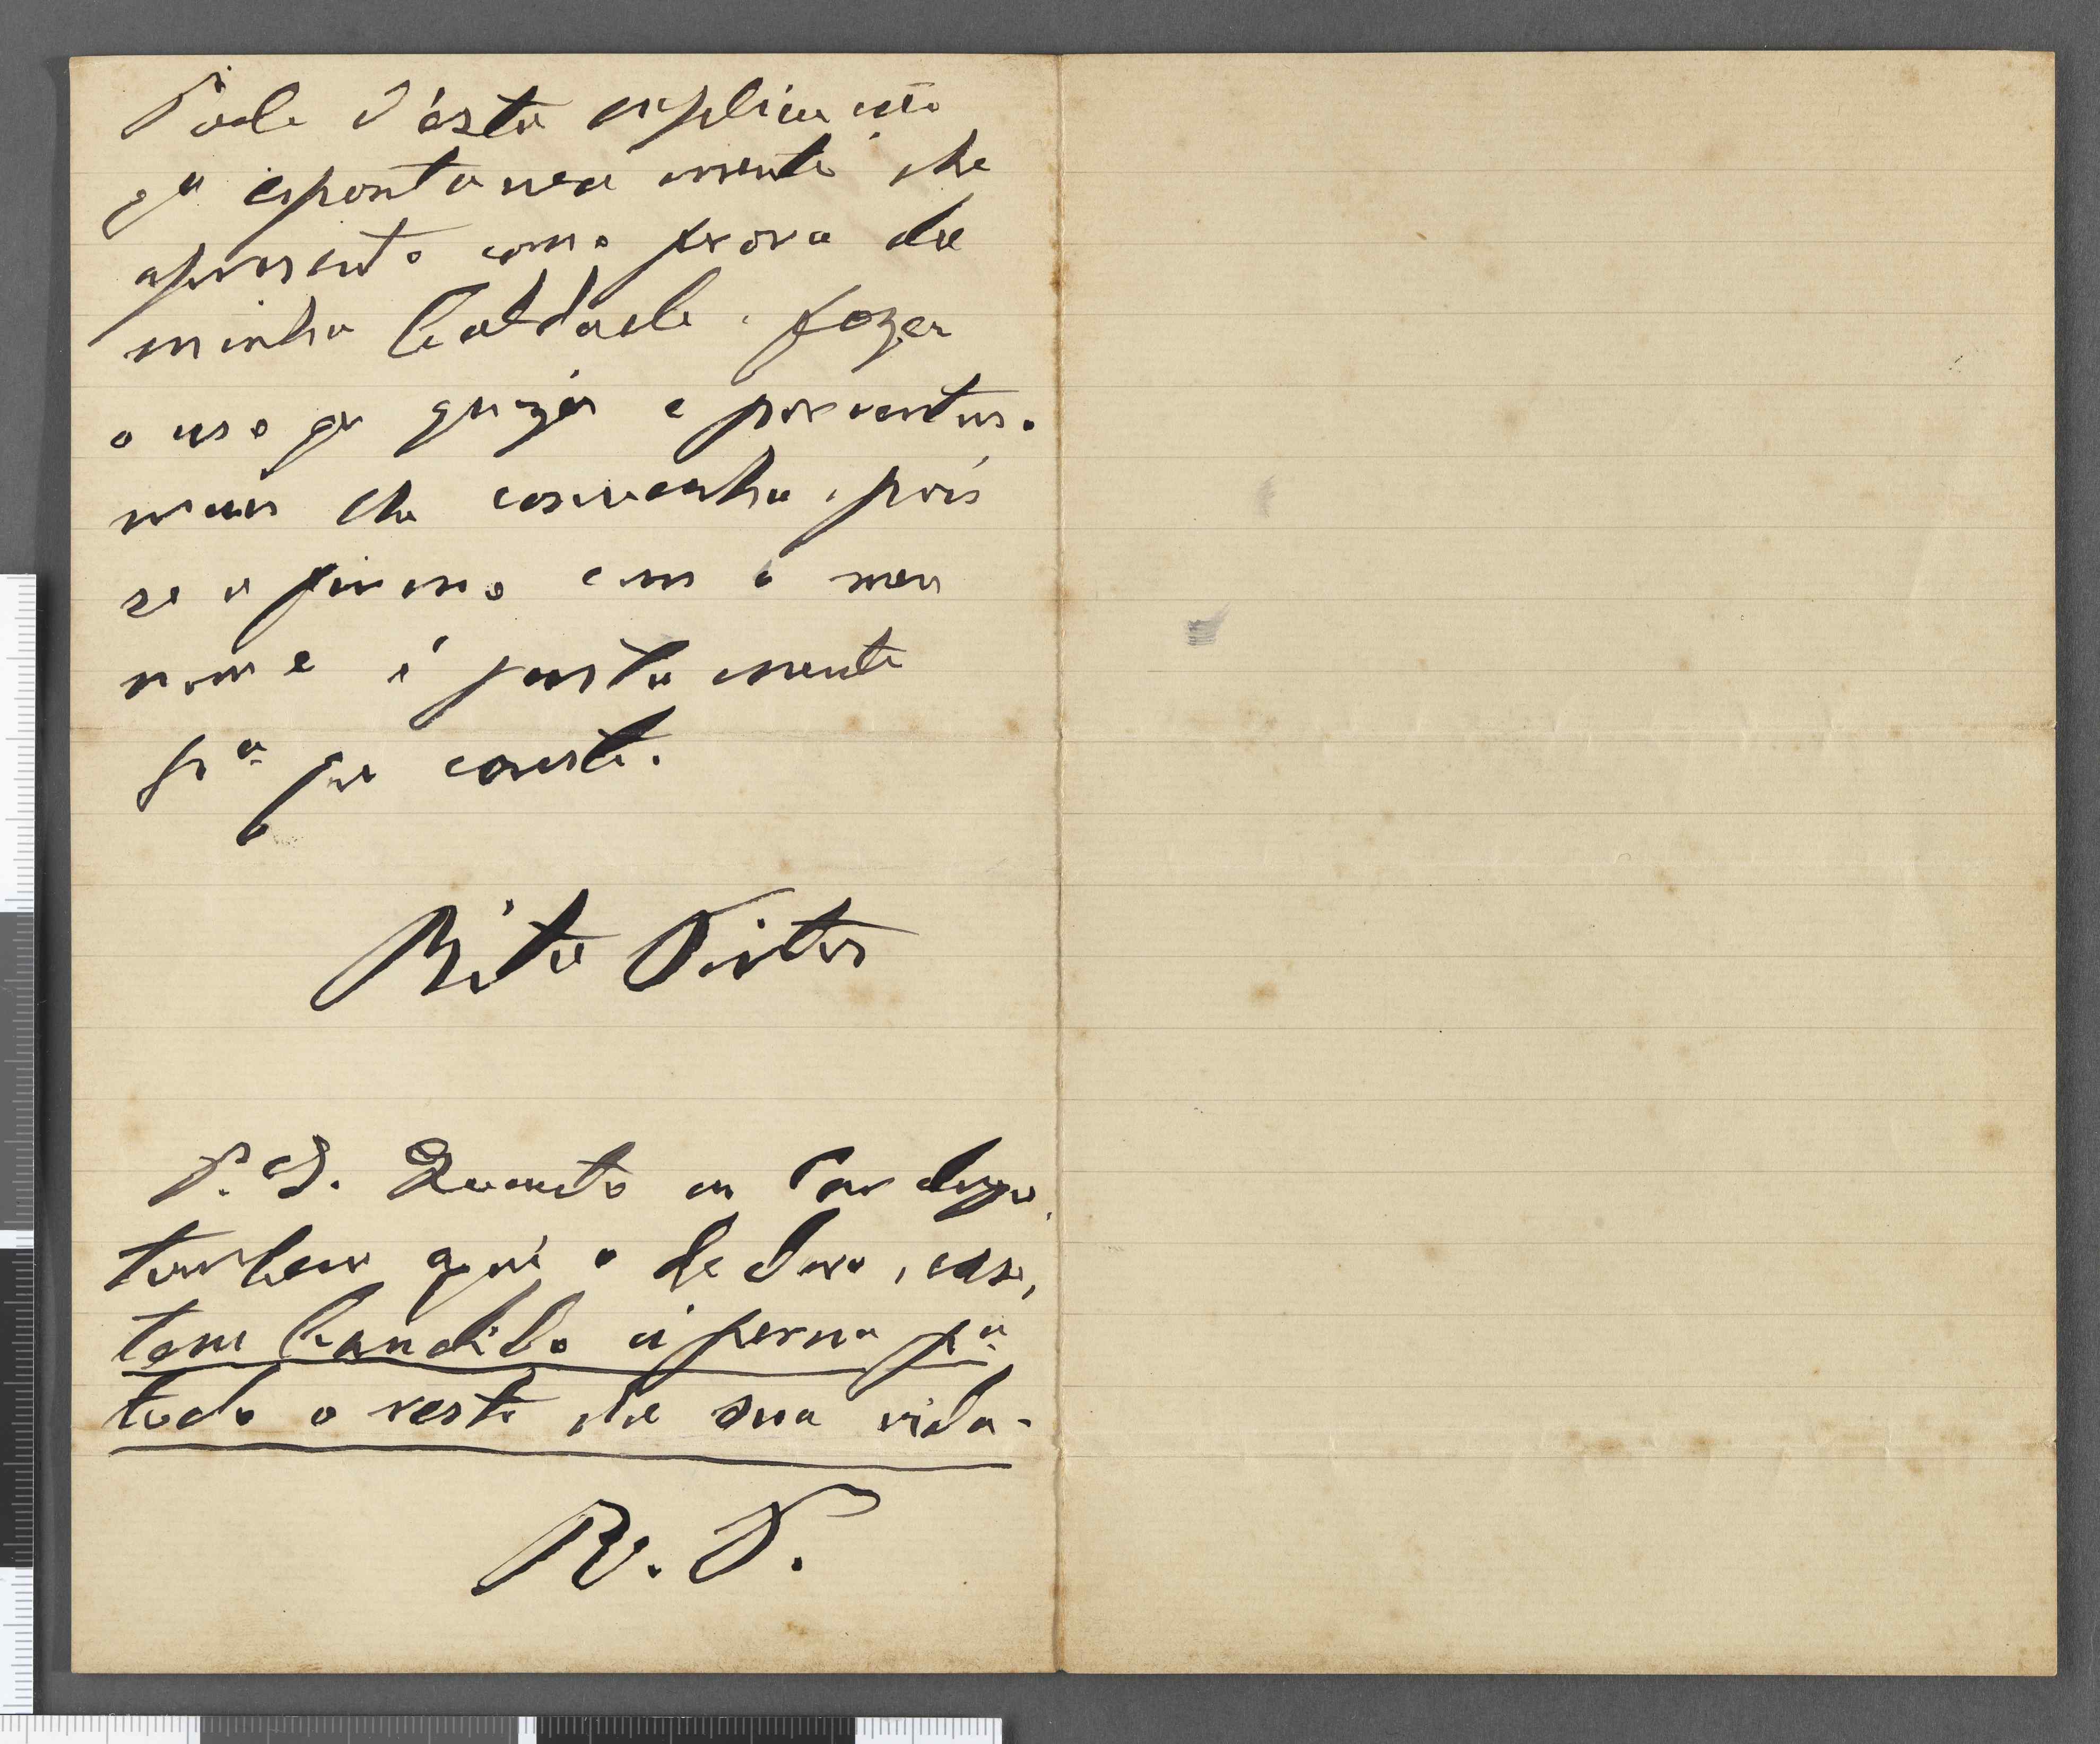 Póde d'ésta explicação
qe espontanea mente lhe
apresento como prova de
minha lealdade. fazer
o uso qe quizér e porventur.
mais lhe convenha, pois
se a firmo com o meu
nome é justa mente
pra que conste.
Rita Pinto
P.S. Quanto
tambem aqui o declaro, caso,
tem Candido á perna pa
todo o resto de sua vida.
R. P.